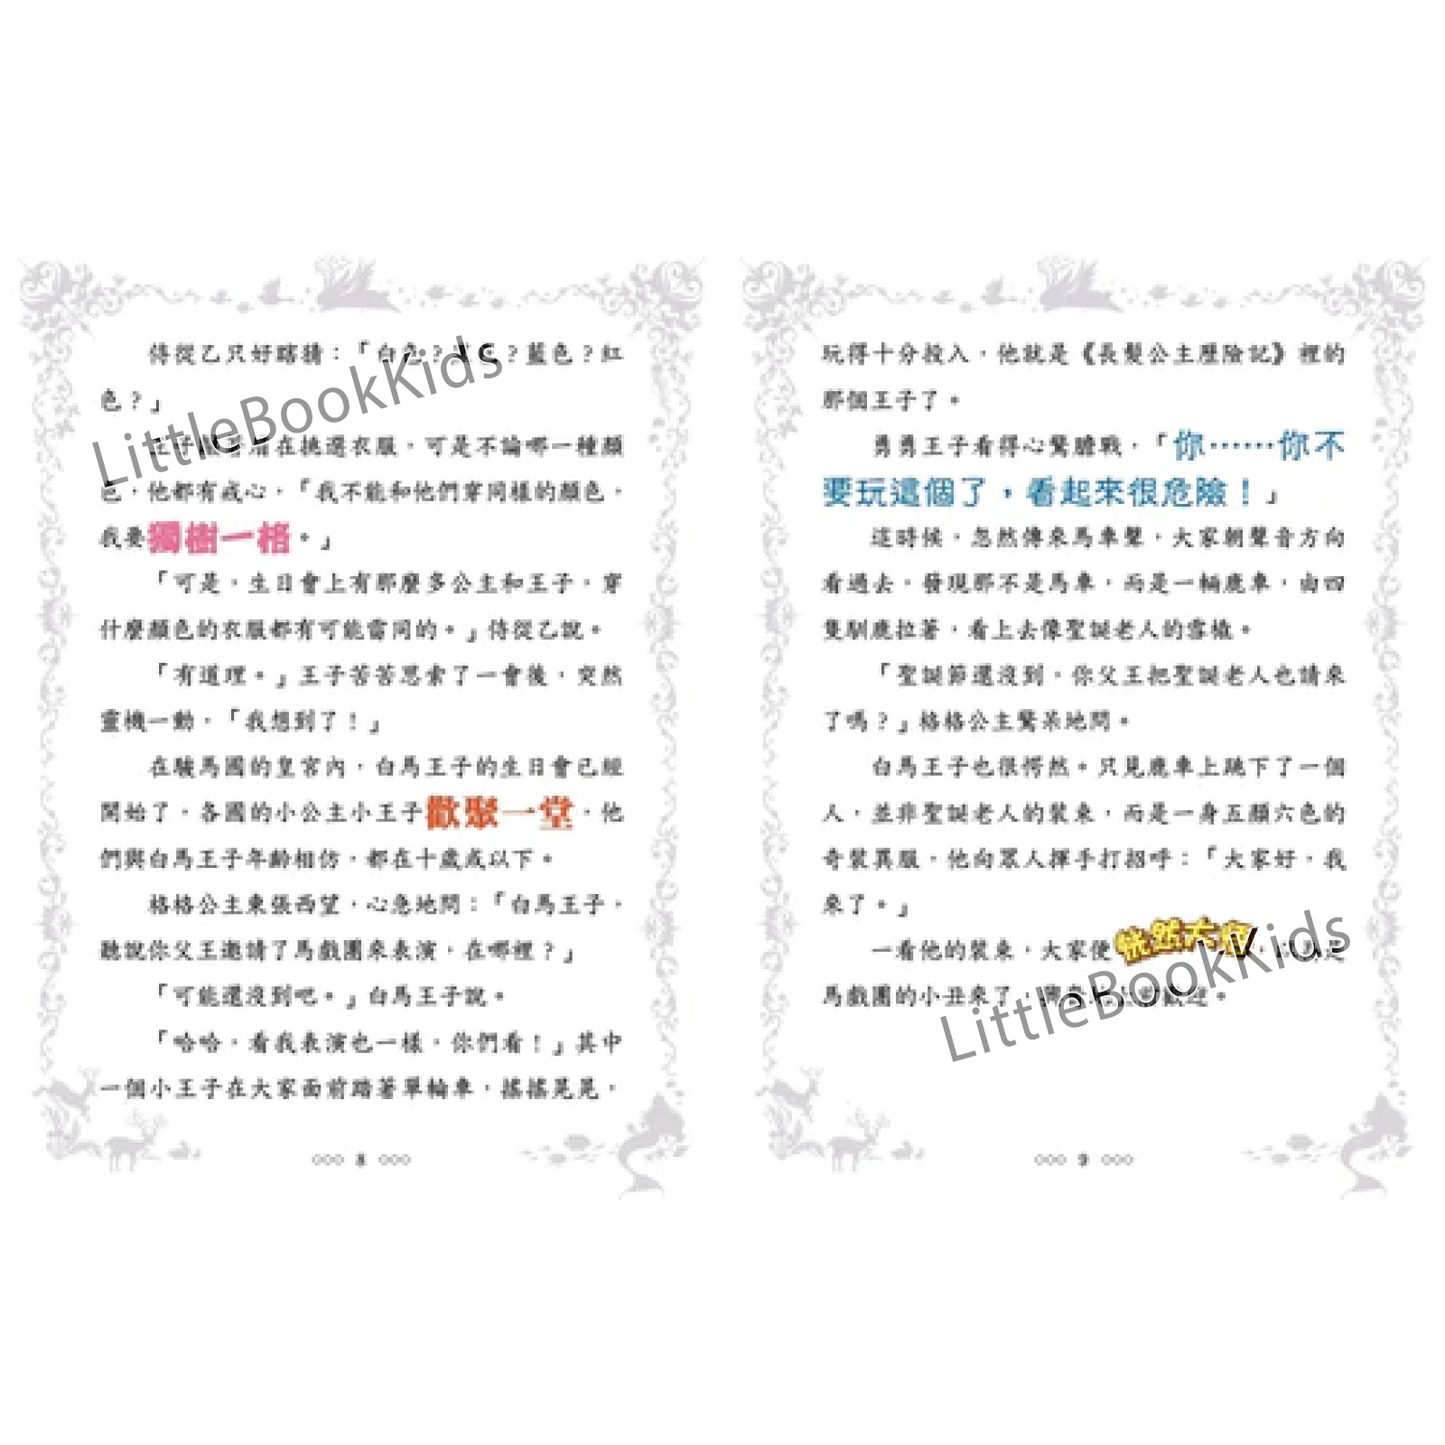 侍從乙只好瞎猜：「白色？？藍色？紅
色？」
王子在挑選衣服，可是不論哪一種顏
色，他都有戒心，「我不能和他們穿同樣的顏色，
我要獨樹一格。」
「可是，生日會上有那麼多公主和王子，穿
什麼顏色的衣服都有可能雷同的。」侍從乙說。
「有道理。」王子苦苦思索了一會後，突然
靈機一動，「我想到了！」
在駿馬國的皇宮內，白馬王子的生日會已經
開始了，各國的小公主小王子歡聚一堂，他
們與白馬王子年齡相仿，都在十歲或以下。
格格公主東張西望，心急地問：「白馬王子，
聽說你父王邀請了馬戲團來表演，在哪裡？」
「可能還沒到吧。」白馬王子說。
「哈哈，看我表演也一樣，你們看！」其中
一個小王子在大家面前踏著單輪車，搖搖晃晃，
8
玩得十分投入，他就是《長髮公主歷險記》裡的
那個王子了。
勇勇王子看得心驚膽戰，「你……你不
要玩這個了，看起來很危險！」
這時候，忽然傳來馬車聲，大家朝聲音方向
看過去，發現那不是馬車，而是一輛鹿車，由四
隻馴鹿拉著，看上去像聖誕老人的雪橇。
「聖誕節還沒到，你父王把聖誕老人也請來
了嗎？」格格公主驚呆地問。
白馬王子也很愕然。只見鹿車上跳下了一個
人，並非聖誕老人的裝束，而是一身五顏六色的
奇裝異服，他向眾人揮手打招呼：「大家好，我
來了。」
一看他的裝束，大家便恍然大悟，
馬戲團的小丑來了，歡迎。
9
LittleBookKids
LittleBookKids